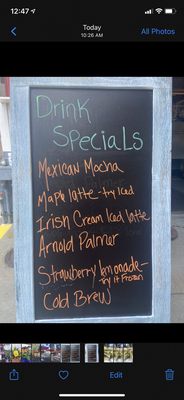 12:47
Today
10:26 AM
All Photos
Drink
Specials
Mexican Mocha
Maple latte - try Iced
Irish Cream Iced latte
Arnold Palmer
Strawberry lemonade -
try it Frozen
Cold Brew
Edit